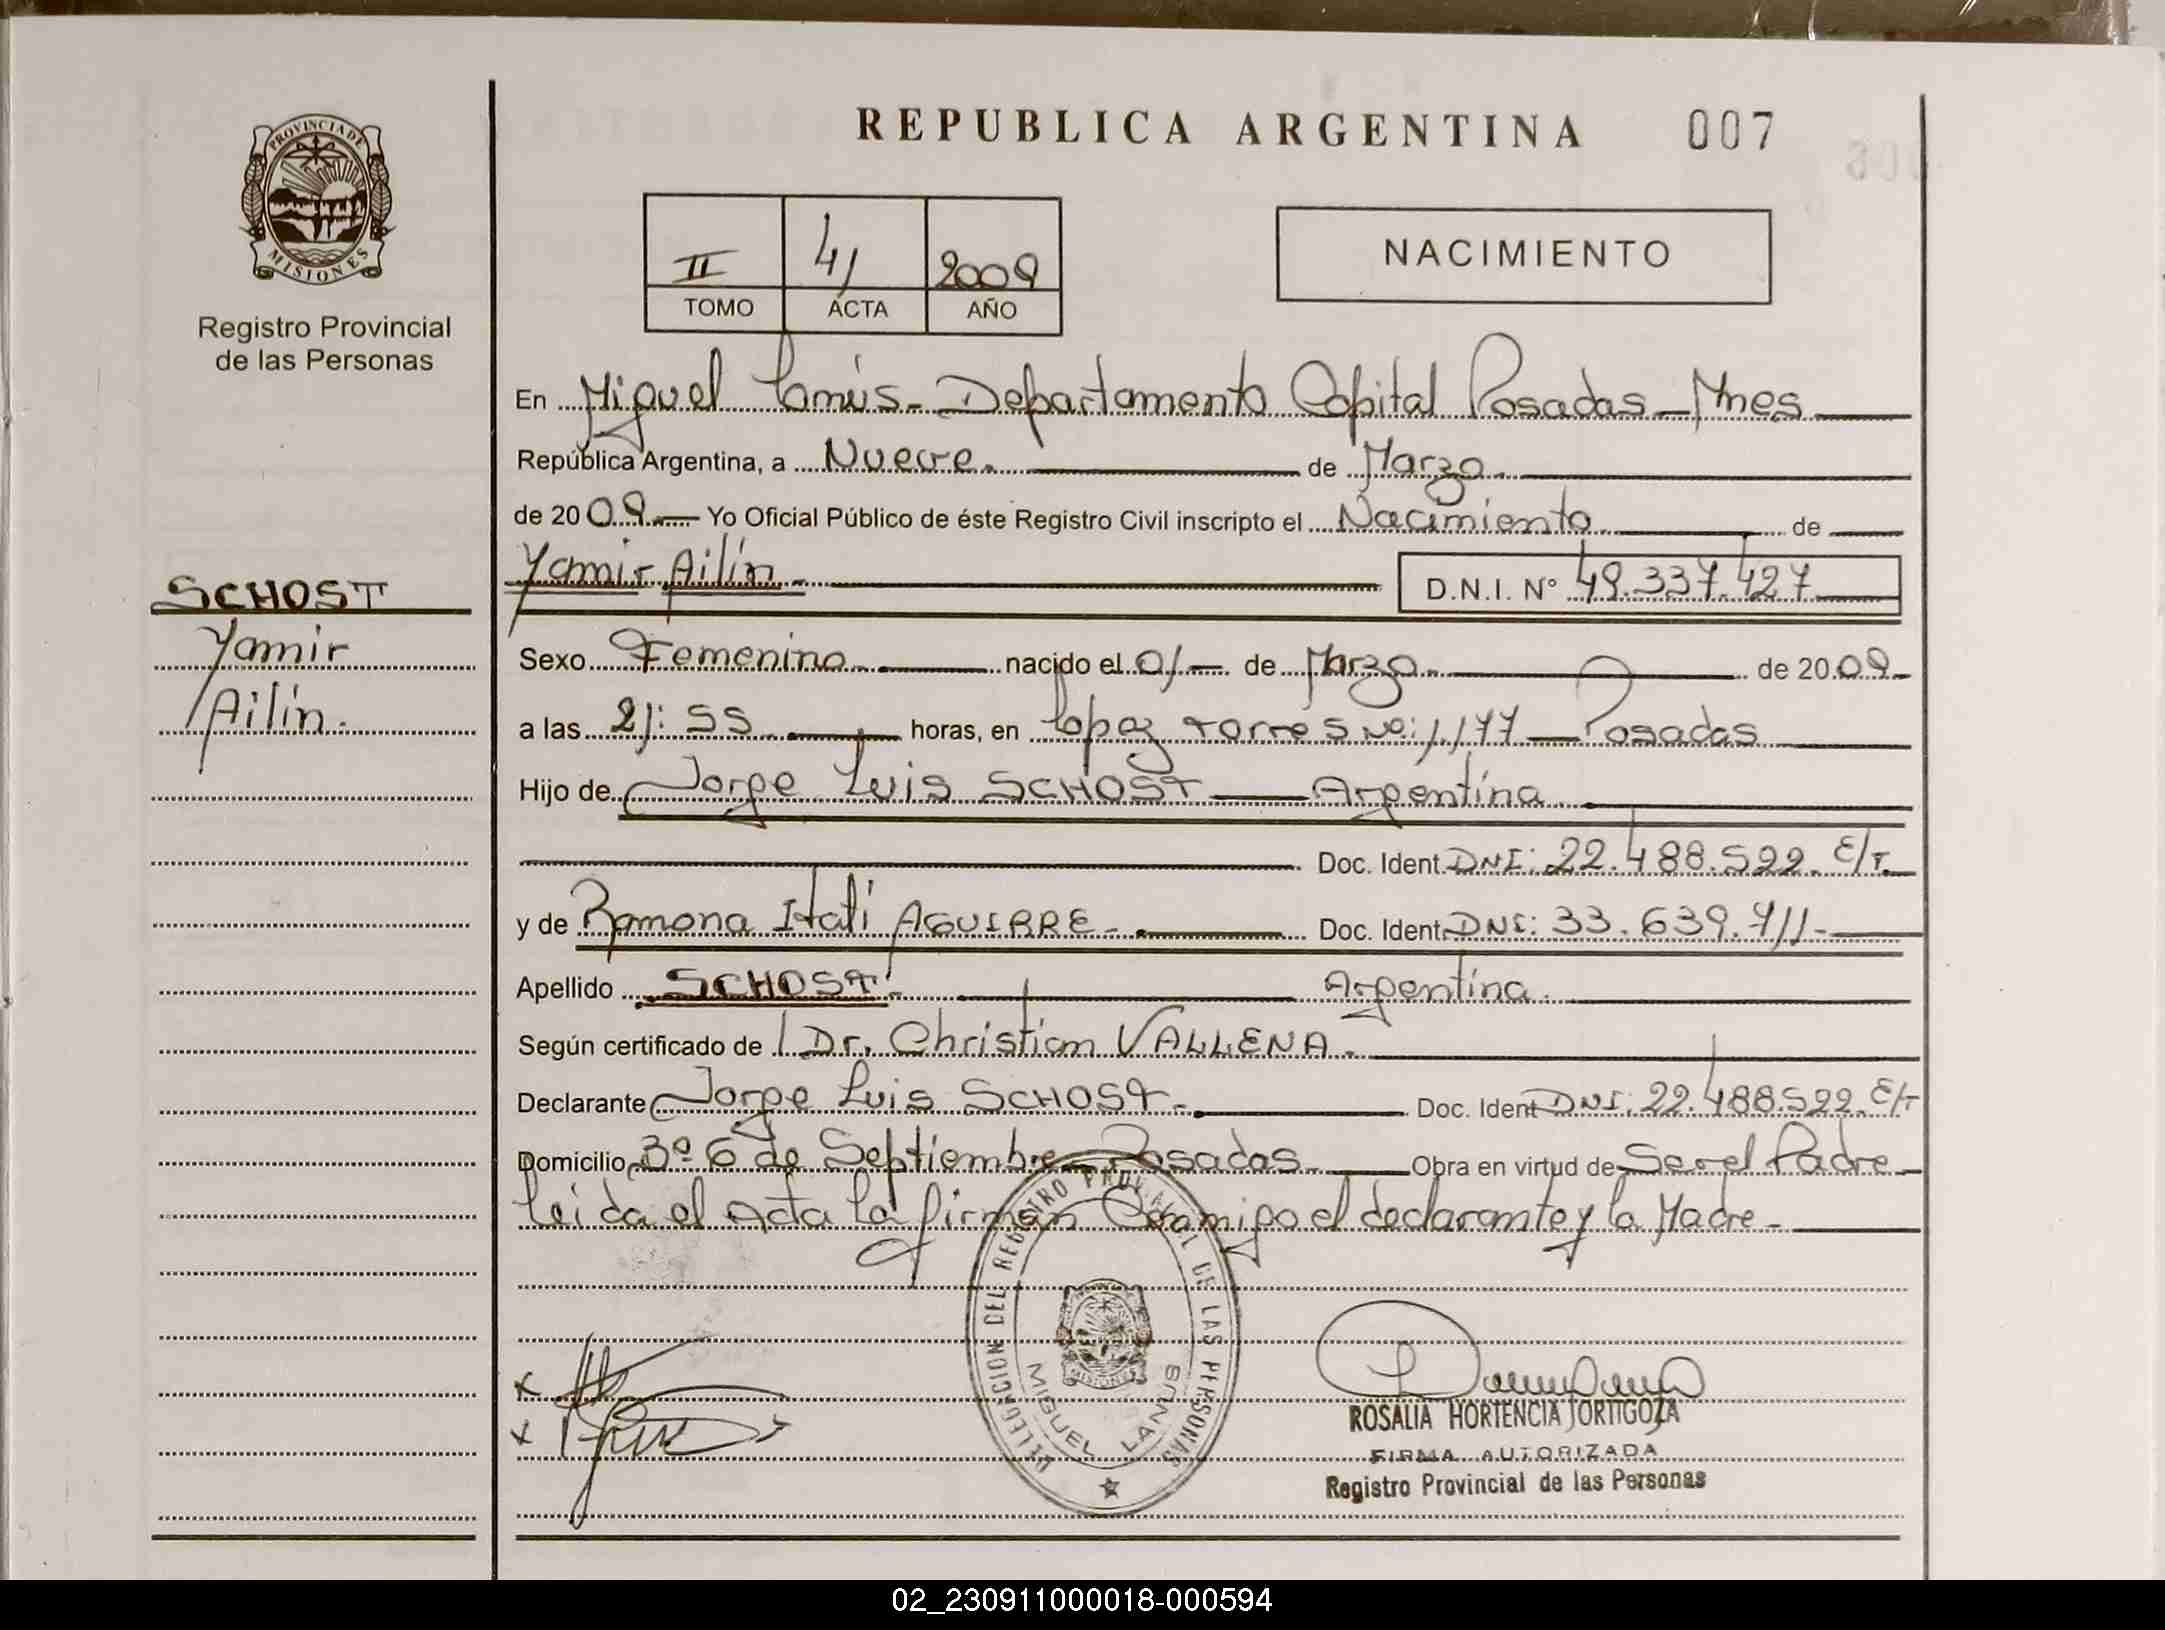 REPUBLICA ARGENTINA 007
PROVINCIA DE
MISIONES
Registro Provincial
de las Personas
II 41 2009
TOMO ACTA AÑO
NACIMIENTO
En Miguel Lanús - Departamento Capital Posadas - Mnes
República Argentina, a Nueve. de Marzo.
de 2009. Yo Oficial Público de éste Registro Civil inscripto el Nacimiento de
Yamir Ailín. D.N.I. Nº 49.337.427
SCHOST
Yamir
Ailín.
Sexo Femenino. nacido el 01 de Marzo. de 2009.
a las 21:55 horas, en Lopez Torres Nº: 1.177 - Posadas
Hijo de Jorge Luis SCHOST - Argentina.
Doc. Ident. DNI: 22.488.522. E/T.
y de Ramona Itatí AGUIRRE. Doc. Ident. DNI: 33.639.711.
Apellido SCHOST. Argentina.
Según certificado de Dr. Christian VALLENA.
Declarante Jorge Luis SCHOST. Doc. Ident DNI. 22.488.522. E/T
Domicilio 3º 6 de Septiembre - Posadas Obra en virtud de Ser el Padre
Leida el Acta la firman Conmigo el declarante y la Madre -
DELEGACION DEL REGISTRO PROVINCIAL DE LAS PERSONAS
MIGUEL LANUS
ROSALIA HORTENCIA ORTIGOZA
FIRMA AUTORIZADA
Registro Provincial de las Personas
02_230911000018-000594